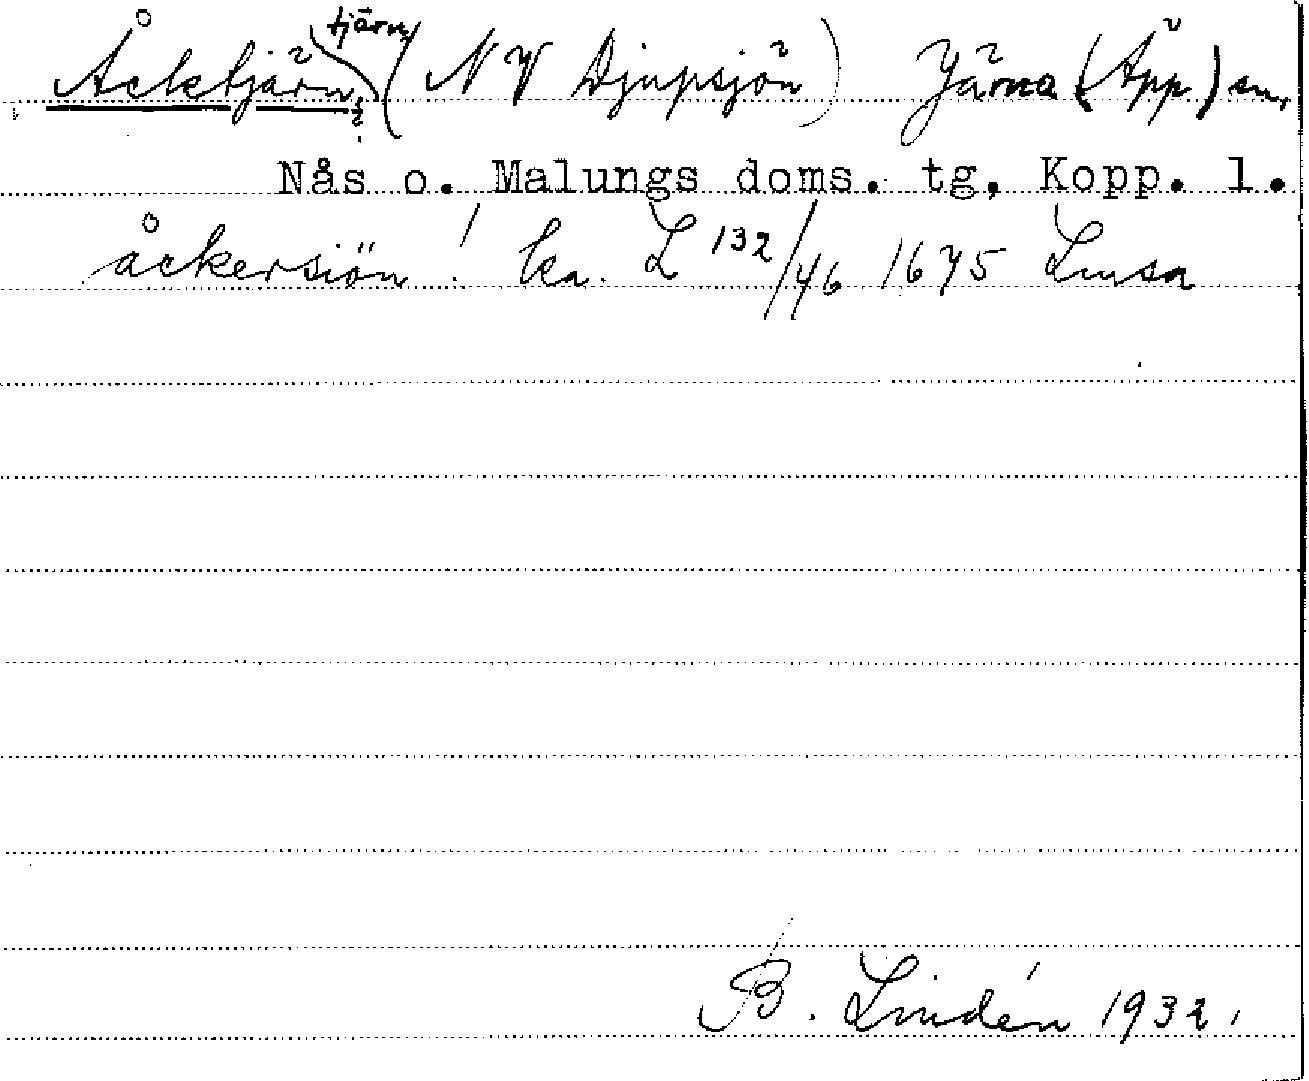 Åcktjärn, tjärn (NV Djupsjön) Järna (Äpp) sn,
Nås o. Malungs doms. tg, Kopp. l.
åckersiön! ka. L 132/46 1675 Lmsa
B. Lindén 1932.